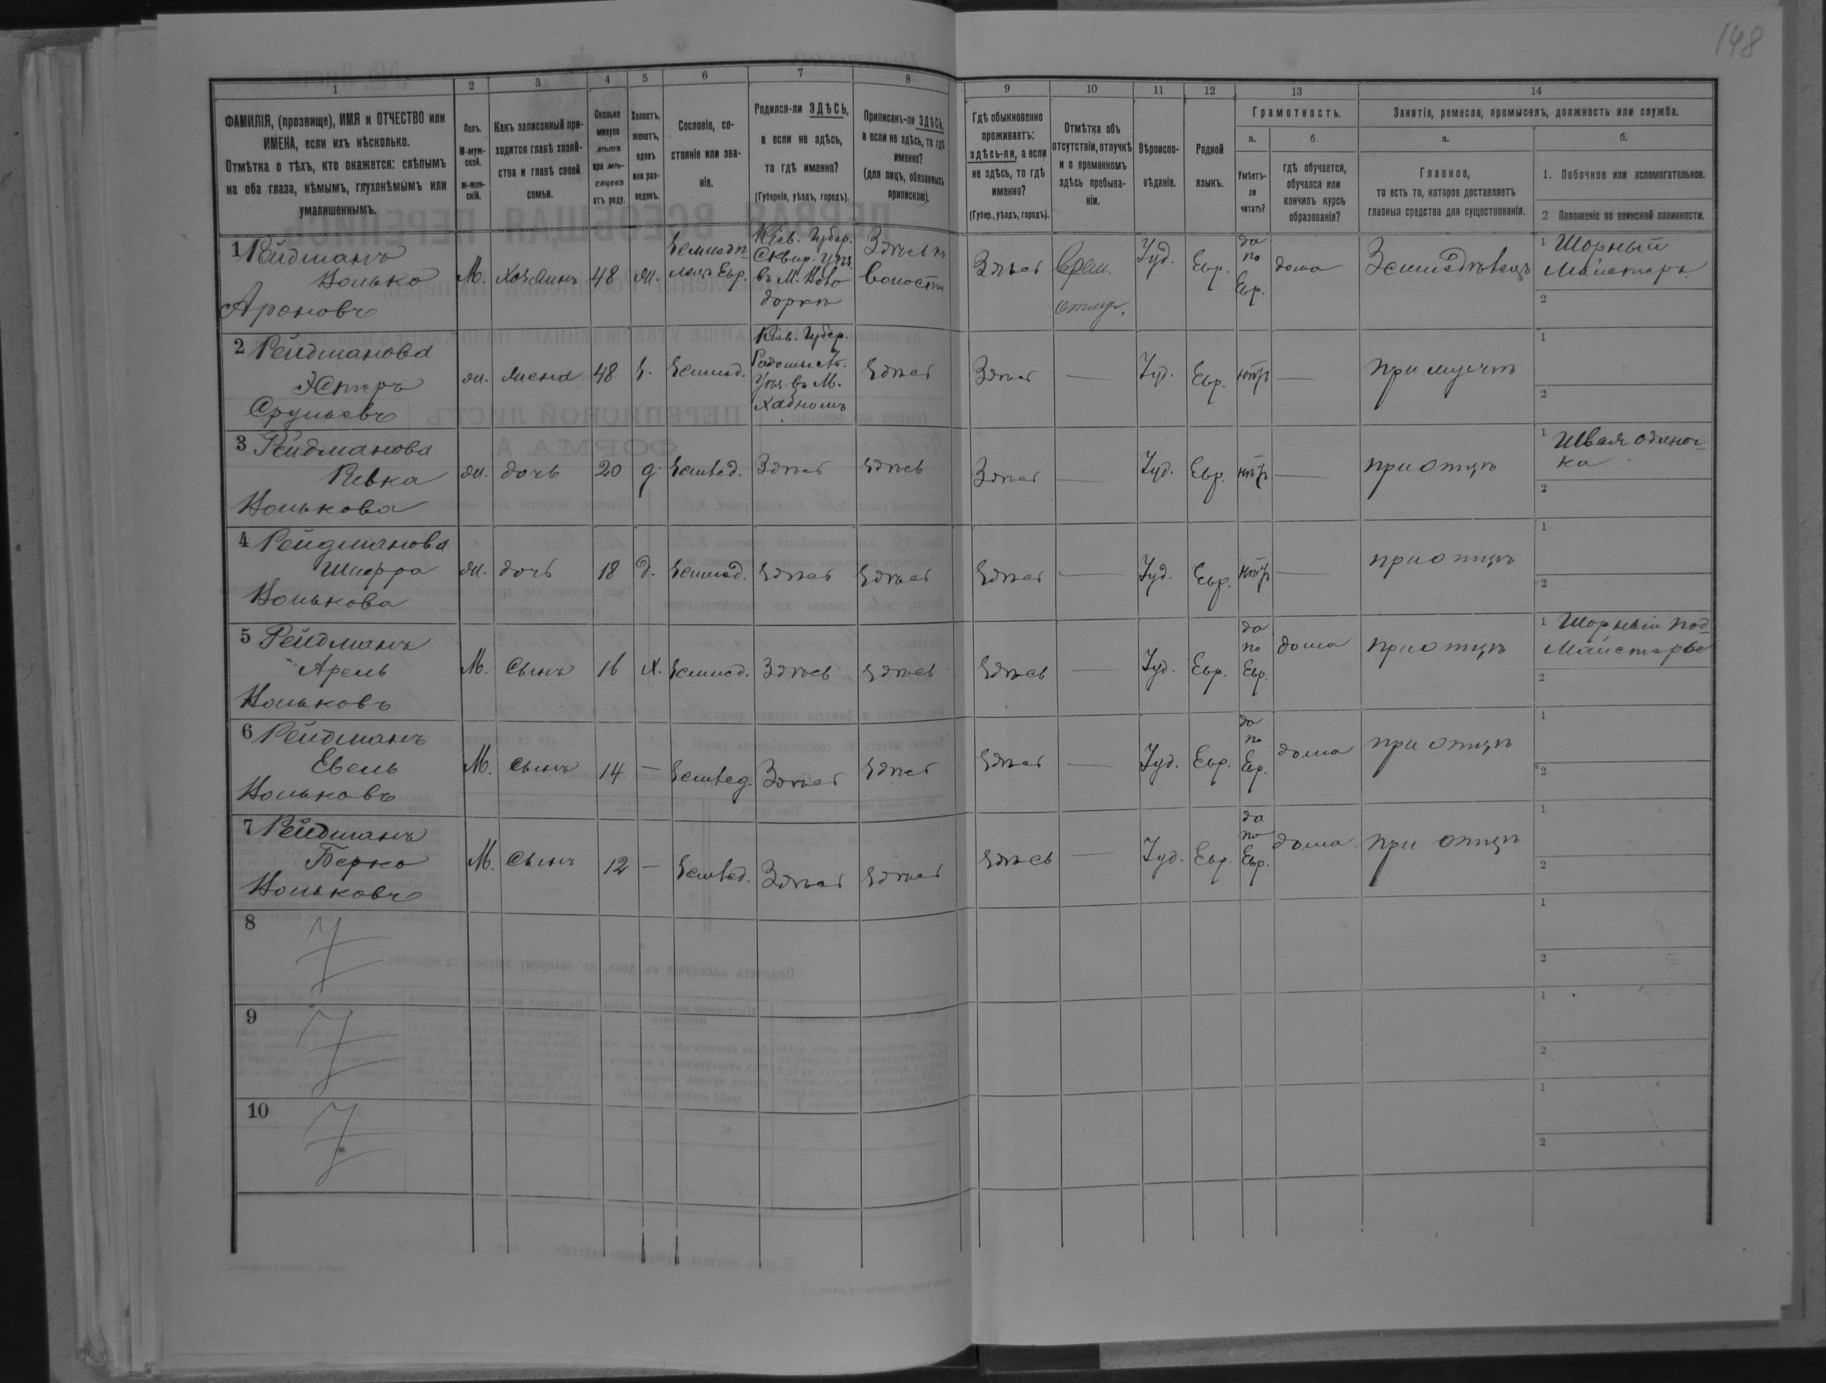 148
1 2 3 4 5 6 7 8 9 10 11 12 13 14
ФАМИЛІЯ, (прозвище), ИМЯ и ОТЧЕСТВО или
ИМЕНА, если ихъ нѣсколько.
Отмѣтка о тѣхъ, кто окажется: слѣпымъ
на оба глаза, нѣмымъ, глухонѣмымъ или
умалишеннымъ.
Полъ.
М-муж-
ской.
ж-жен-
скій.
Какъ записанный при-
ходится главѣ хозяй-
ства и главѣ своей
семьи.
Сколько
минуло
лѣтъ
или мѣ-
сяцевъ
отъ роду.
Холостъ,
женатъ,
вдовъ
или раз-
веденъ.
Сословіе, со-
стояніе или зва-
ніе.
Родился-ли ЗДѢСЬ,
а если не здѣсь,
то гдѣ именно?
(Губернія, уѣздъ, городъ).
Приписанъ-ли ЗДѢСЬ,
а если не здѣсь, то гдѣ
именно?
(для лицъ, обязанныхъ
припискою).
Гдѣ обыкновенно
проживаетъ:
здѣсь-ли, а если
не здѣсь, то гдѣ
именно?
(Губер., уѣздъ, городъ).
Отмѣтка объ
отсутствіи, отлучкѣ
и о временномъ
здѣсь пребыва-
ніи.
Вѣроиспо-
вѣданіе.
Родной
языкъ.
Грамотность.
а.
Умѣетъ-
ли
читать?
б.
гдѣ обучается,
обучался или
кончилъ курсъ
образованія?
Занятія, ремесло, промыселъ, должность или служба.
а.
Главное,
то есть то, которое доставляетъ
главныя средства для существованія.
б.
1. Побочное или вспомогательное.
2 Положеніе по воинской повинности.
1 Рейдманъ
Нолько
Ароновъ
М. Хозяинъ 48 ж.
Евр.
Кіев. Губер.
Сквир. уѣз.
въ М. Ново
Здѣсь
волости
Здѣсь
Врем.
отлуч.
Іуд. Евр.
да
по
Евр.
дома
Земледѣлецъ
1 Шорный
Майстеръ
2
2 Рейдманова
Эстеръ
Сруль­евъ
ж. жена 48 з. Землед.
Кіев. Губер.
Радомысл.
Уѣз. въ М.
Хабномъ
Здѣсь Здѣсь — Іуд. Евр. нѣтъ —
при мужѣ
1
2
3 Рейдманова
Ривка
Нолькова
ж. дочь 20 д. Землед. Здѣсь Здѣсь Здѣсь — Іуд. Евр. нѣтъ — при отцѣ
1 Швея одиноч-
ка
2
4 Рейдманова
Шифра
Нолькова
ж. дочь 18 д. Землед. Здѣсь Здѣсь Здѣсь — Іуд. Евр. нѣтъ — при отцѣ
1
2
5 Рейдманъ
Арель
Нольковъ
М. Сынъ 16 х. Землед. Здѣсь Здѣсь Здѣсь — Іуд. Евр.
да
по
Евр.
дома при отцѣ
1 Шорный под-
Майстерье
2
6 Рейдманъ
Евель
Нольковъ
М. Сынъ 14 — Землед. Здѣсь Здѣсь Здѣсь — Іуд. Евр.
да
по
Евр.
дома при отцѣ
1
2
7 Рейдманъ
Берко
Нольковъ
М. Сынъ 12 — Землед. Здѣсь Здѣсь Здѣсь — Іуд. Евр.
да
по
Евр.
дома при отцѣ
1
2
8
1
2
9
1
2
10
1
2